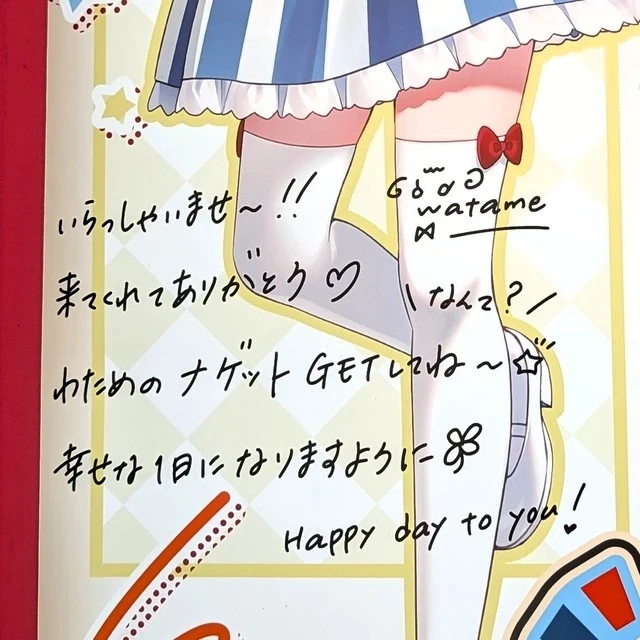 いらっしゃいませ〜!!
来てくれてありがとう♡
わための ナゲット GETしてね〜☆
幸せな1日になりますように
Happy day to you!
watame
\なんて?/